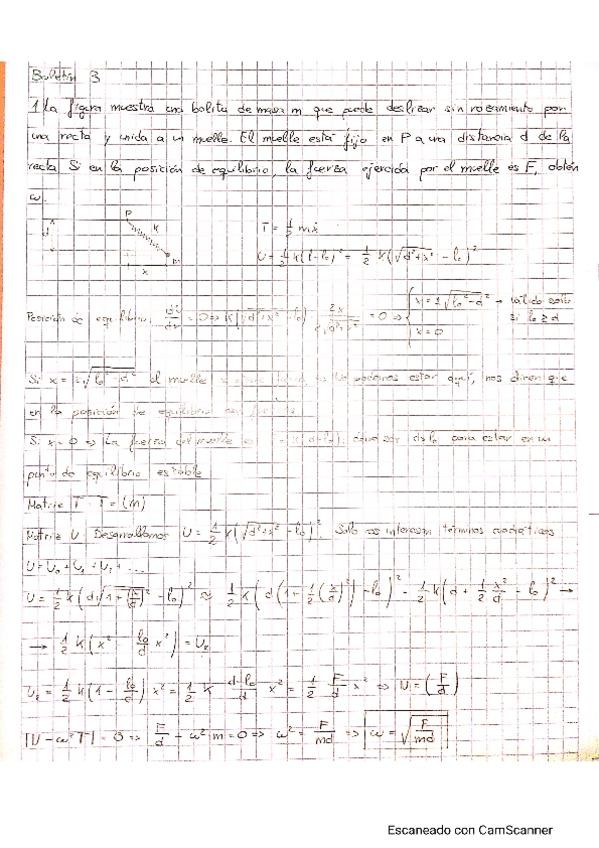 Boletín 3
1 La figura muestra una bolita de masa m que puede deslizar sin rozamiento por
una recta y unida a un muelle. El muelle está fijo en P a una distancia d de la
recta Si en la posición de equilibrio, la fuerza ejercida por el muelle es F, obtén
ω.
P
K
d
m
x
T = 1/2 mẋ
U = 1/2 K(l-l₀)² = 1/2 K(√(d²+x²) - l₀)²
Posición de equilibrio, = 0 ⇒ K(√(d²+x²) - l₀) 2x = 0 ⇒ { x = ±√(l₀²-d²) → válido solo si l₀ ≥ d
x = 0
Si x = ±√(l₀²-d²) el muelle no podemos estar aquí, nos dicen que
en la posición de equilibrio
Si x = 0 ⇒ La fuerza del muelle es para estar en un
punto de equilibrio estable
Matriz T T = (m)
Matriz U Desarrollamos U = 1/2 K(√(d²+x²) - l₀)². Solo nos interesan términos cuadráticos
U = U₀ + U₁ + U₂ + ...
U = 1/2 K(d√(1+(x/d)²) - l₀)² ≈ 1/2 K(d(1+1/2(x/d)²) - l₀)² = 1/2 K(d + 1/2 x²/d - l₀)² →
→ 1/2 K(x² - l₀/d x²) = U₂
U₂ = 1/2 K(1 - l₀/d) x² = 1/2 K (d-l₀)/d x² = 1/2 F/d x² ⇒ U = (F/d)
|U - ω²T| = 0 ⇒ F/d - ω² m = 0 ⇒ ω² = F/md ⇒ ω = √(F/md)
Escaneado con CamScanner